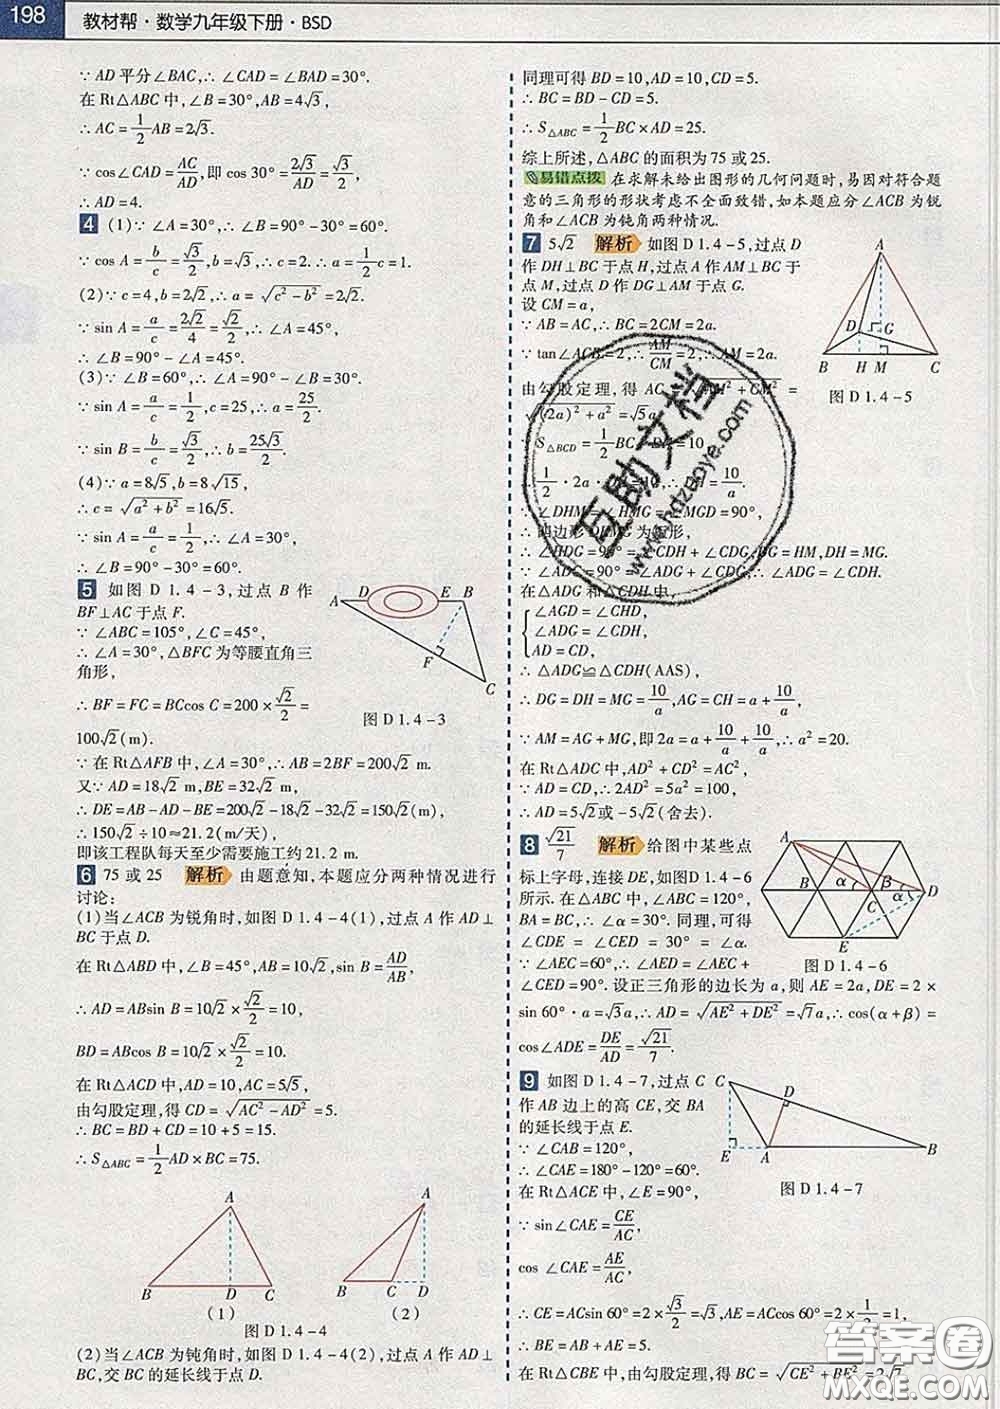 198 教材帮·数学九年级下册·BSD
∵ AD 平分∠BAC,∴ ∠CAD = ∠BAD = 30°.
在 Rt△ABC 中,∠B = 30°,AB = 4√3,
∴ AC = 1/2 AB = 2√3.
∵ cos∠CAD = AC/AD,即 cos 30° = 2√3/AD = √3/2,
∴ AD = 4.
4 (1)∵ ∠A = 30°,∴ ∠B = 90° - 30° = 60°.
∵ cos A = b/c = √3/2,b = √3,∴ c = 2. ∴ a = 1/2 c = 1.
(2)∵ c = 4,b = 2√2,∴ a = √(c² - b²) = 2√2.
∵ sin A = a/c = 2√2/4 = √2/2,∴ ∠A = 45°,
∴ ∠B = 90° - ∠A = 45°.
(3)∵ ∠B = 60°,∴ ∠A = 90° - ∠B = 30°.
∵ sin A = a/c = 1/2,c = 25,∴ a = 25/2.
∵ sin B = b/c = √3/2,∴ b = 25√3/2.
(4)∵ a = 8√5,b = 8√15,
∴ c = √(a² + b²) = 16√5.
∵ sin A = a/c = 1/2,∴ ∠A = 30°,
∴ ∠B = 90° - 30° = 60°.
5 如图 D 1.4-3,过点 B 作
BF⊥AC 于点 F.
∵ ∠ABC = 105°,∠C = 45°,
∴ ∠A = 30°,△BFC 为等腰直角三
角形,
∴ BF = FC = BCcos C = 200 × √2/2 =
100√2(m).
A D E B F C
图 D 1.4-3
∵ 在 Rt△AFB 中,∠A = 30°,∴ AB = 2BF = 200√2 m.
又∵ AD = 18√2 m,BE = 32√2 m,
∴ DE = AB - AD - BE = 200√2 - 18√2 - 32√2 = 150√2(m),
∴ 150√2 ÷ 10 ≈ 21.2(m/天),
即该工程队每天至少需要施工约 21.2 m.
6 75 或 25 解析 由题意知,本题应分两种情况进行
讨论:
(1)当∠ACB 为锐角时,如图 D 1.4-4(1),过点 A 作 AD⊥
BC 于点 D.
在 Rt△ABD 中,∠B = 45°,AB = 10√2,sin B = AD/AB,
∴ AD = ABsin B = 10√2 × √2/2 = 10,
BD = ABcos B = 10√2 × √2/2 = 10.
在 Rt△ACD 中,AD = 10,AC = 5√5,
由勾股定理,得 CD = √(AC² - AD²) = 5.
∴ BC = BD + CD = 10 + 5 = 15.
∴ S△ABC = 1/2 AD × BC = 75.
A B D C
(1)
A B C D
(2)
图 D 1.4-4
(2)当∠ACB 为钝角时,如图 D 1.4-4(2),过点 A 作 AD⊥
BC,交 BC 的延长线于点 D.
同理可得 BD = 10,AD = 10,CD = 5.
∴ BC = BD - CD = 5.
∴ S△ABC = 1/2 BC × AD = 25.
综上所述,△ABC 的面积为 75 或 25.
易错点拨 在求解未给出图形的几何问题时,易因对符合题
意的三角形的形状考虑不全面致错,如本题应分∠ACB 为锐
角和∠ACB 为钝角两种情况.
7 5√2 解析 如图 D 1.4-5,过点 D
作 DH⊥BC 于点 H,过点 A 作 AM⊥BC 于
点 M,过点 D 作 DG⊥AM 于点 G.
设 CM = a,
∵ AB = AC,∴ BC = 2CM = 2a.
∵ tan∠ACB = 2,∴ AM/CM = 2,∴ AM = 2a.
由勾股定理,得 AC = √(AM² + CM²) =
√((2a)² + a²) = √5a.
A D G B H M C
图 D 1.4-5
∵ S△BCD = 1/2 BC · DH = 10,
∴ 1/2 · 2a · DH = 10, DH = 10/a.
∵ ∠DHM = ∠HMG = ∠MGD = 90°,
∴ 四边形 DHMG 为矩形,
∴ ∠HDG = 90° = ∠CDH + ∠CDG,DG = HM,DH = MG.
∵ ∠ADC = 90° = ∠ADG + ∠CDG,∴ ∠ADG = ∠CDH.
在△ADG 和△CDH 中,
∠AGD = ∠CHD,
∠ADG = ∠CDH,
AD = CD,
∴ △ADG≌△CDH(AAS),
∴ DG = DH = MG = 10/a,AG = CH = a + 10/a,
∵ AM = AG + MG,即 2a = a + 10/a + 10/a,∴ a² = 20.
在 Rt△ADC 中,AD² + CD² = AC²,
∵ AD = CD,∴ 2AD² = 5a² = 100,
∴ AD = 5√2或 -5√2(舍去).
8 √21/7 解析 给图中某些点
标上字母,连接 DE,如图 D 1.4-6
所示. 在△ABC 中,∠ABC = 120°,
BA = BC,∴ ∠α = 30°. 同理,可得
∠CDE = ∠CED = 30° = ∠α.
∵ ∠AEC = 60°,∴ ∠AED = ∠AEC +
A B α C β α D E
图 D 1.4-6
∠CED = 90°. 设正三角形的边长为 a,则 AE = 2a,DE = 2 ×
sin 60° · a = √3a,∴ AD = √(AE² + DE²) = √7a,∴ cos(α + β) =
cos∠ADE = DE/AD = √21/7.
9 如图 D 1.4-7,过点 C
作 AB 边上的高 CE,交 BA
的延长线于点 E.
∵ ∠CAB = 120°,
∴ ∠CAE = 180° - 120° = 60°.
在 Rt△ACE 中,∠E = 90°,
C D E A B
图 D 1.4-7
∵ sin∠CAE = CE/AC,
cos ∠CAE = AE/AC,
∴ CE = ACsin 60° = 2 × √3/2 = √3,AE = ACcos 60° = 2 × 1/2 = 1,
∴ BE = AB + AE = 5.
在 Rt△CBE 中,由勾股定理,得 BC = √(CE² + BE²) = 2√7.
互助文档
www.hdzuoye.com
答案圈
MXQE.COM